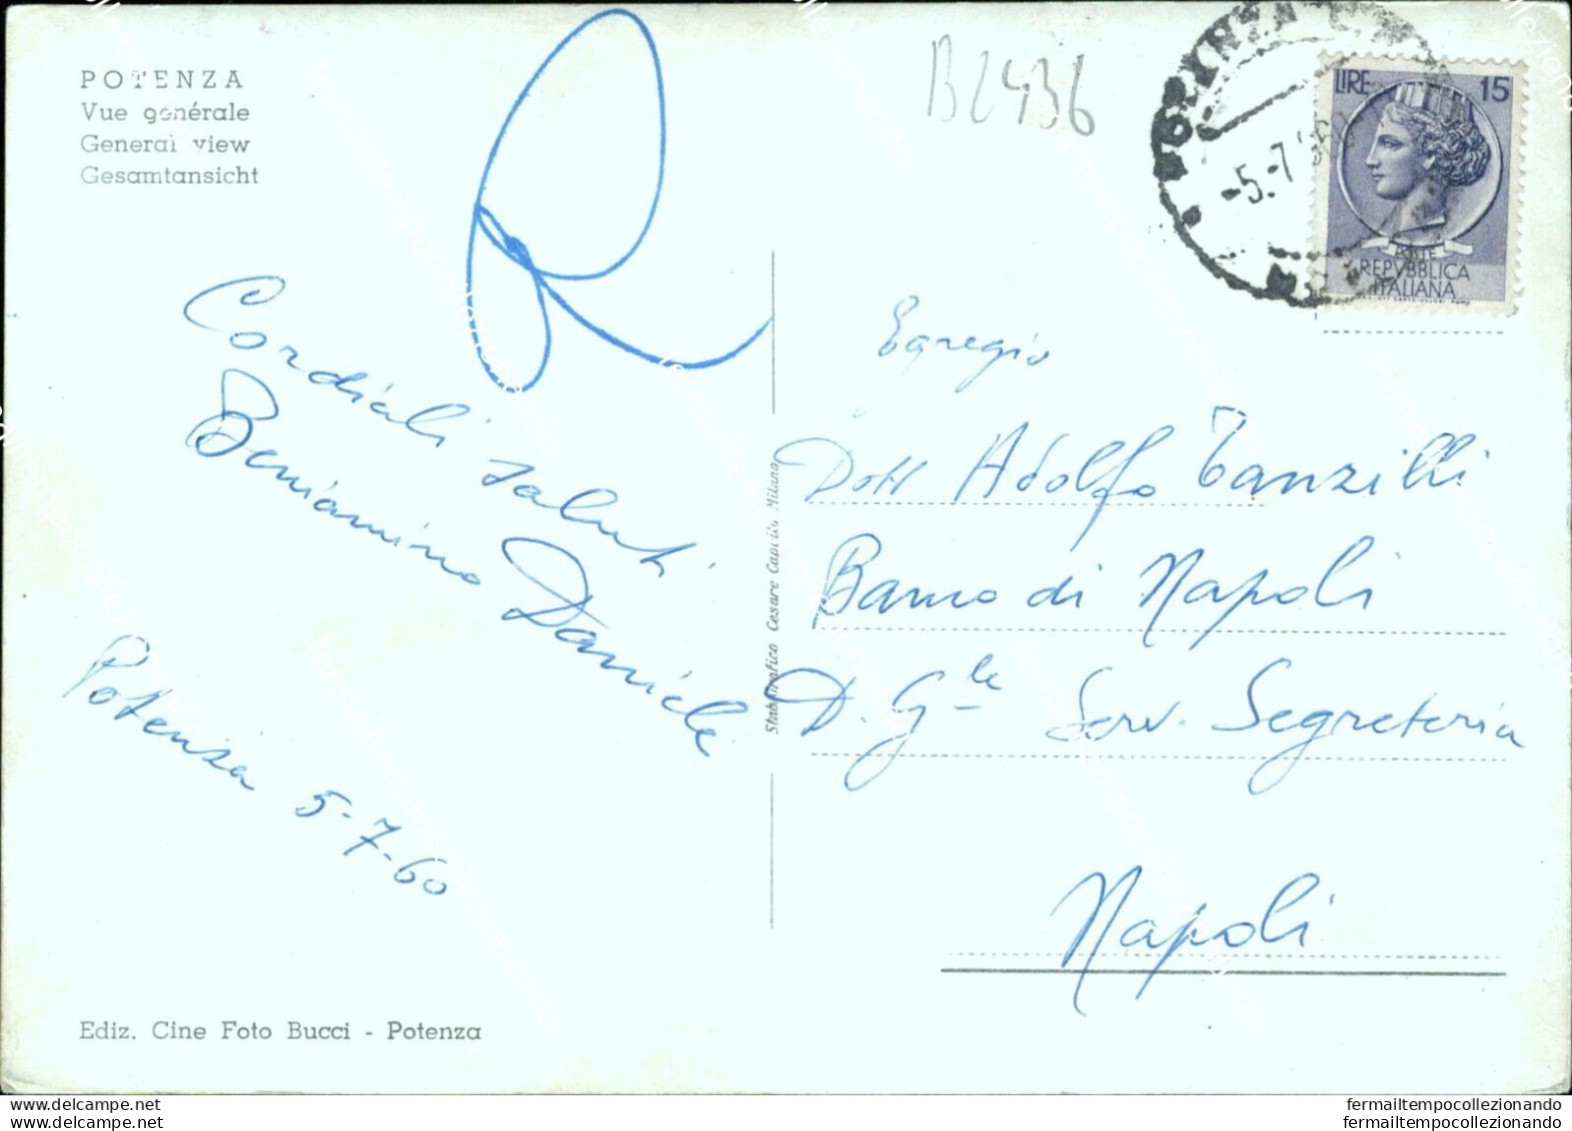 POTENZA
Vue générale
General view
Gesamtansicht
B2436
-5.-7
LIRE 15
POSTE
REPVBBLICA
ITALIANA
Cordiali saluti
Beniamino Daniele
Potenza 5-7-60
Egregio
Dott Adolfo Tanzilli
Banco di Napoli
D. Gle Serv. Segreteria
Napoli
Stab. Grafico Cesare Capello Milano
Ediz. Cine Foto Bucci - Potenza
www.delcampe.net
www.delcampe.net
fermailtempocollezionando
fermailtempocollezionando